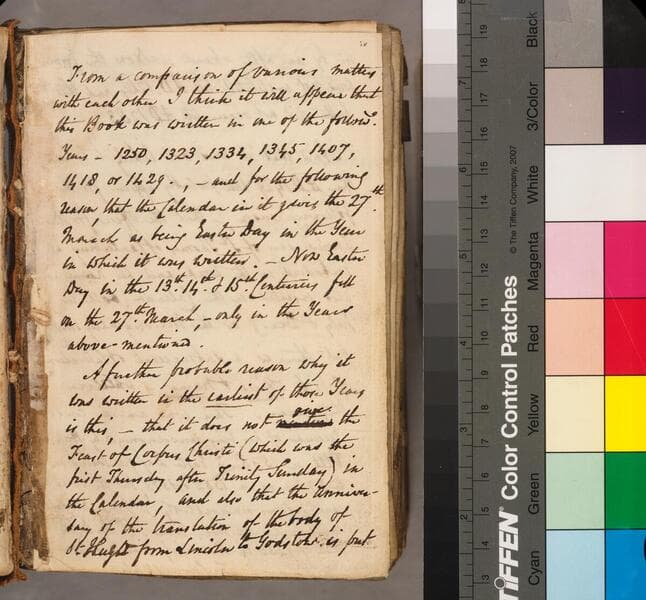 From a comparison of various matters
with each other I think it will appear that
this Book was written in one of the followg.
Years – 1250, 1323, 1334, 1345, 1407,
1418, or 1429. , – and for the following
reason, that the Calendar in it gives the 27th.
March as being Easter Day in the Year
in which it was written. – Now Easter
Day in the 13th. 14th. & 15th. Centuries fell
on the 27th. March, – only in the Years
above-mentioned.
A further probable reason why it
was written in the earliest of those Years
is this, – that it does not give the
Feast of Corpus Christi (which was the
first Thursday after Trinity Sunday) in
the Calendar, and also that the Anniver-
sary of the translation of the body of
St. Hugh from Lincoln to Godstow is put
© The Tiffen Company, 2007
TIFFEN® Color Control Patches
Cyan Green Yellow Red Magenta White 3/Color Black
2 3 4 5 6 7 8 9 10 11 12 13 14 15 16 17 18 19